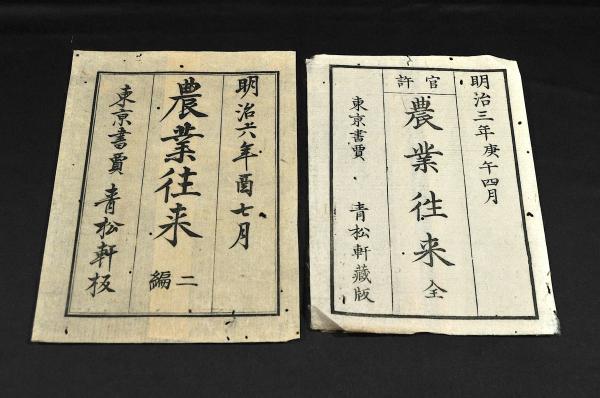 明治三年庚午四月
官許
農業徃来 全
東京書賈 青松軒藏版
明治六年酉七月
農業徃来 二編
東京書賈 青松軒板